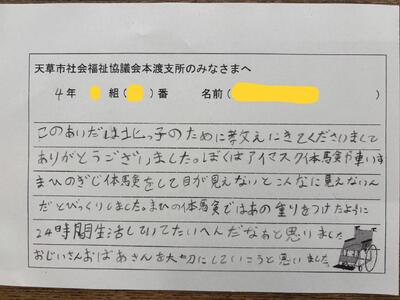 天草市社会福祉協議会本渡支所のみなさまへ
4年 組( )番 名前( )
このあいだは北っ子のために教えにきてくださいまして
ありがとうございました。ぼくはアイマスク体験や車いす
まひのぎじ体験をして目が見えないとこんなに見えないん
だとびっくりしました。まひの体験ではあの重りをつけたように
24時間生活しひてたいへんだなぁと思いました
おじいさんおばあさんを大切にしていこうと思いました。